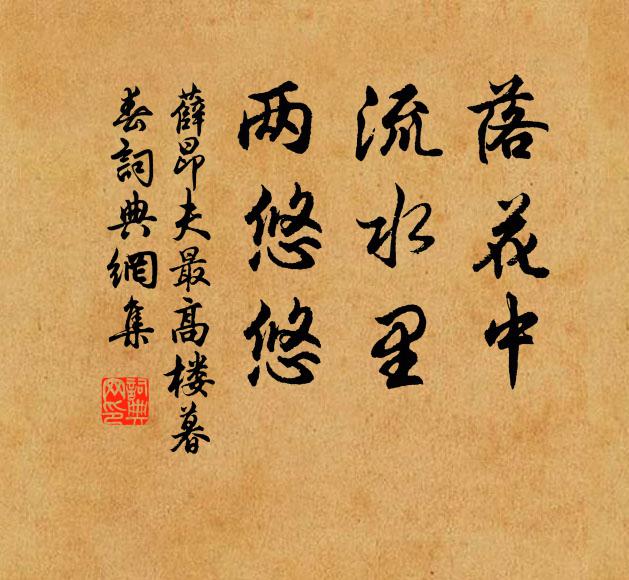 落花中
流水里
两悠悠
薛昂夫最高楼暮
春詞典網集
詞典
网印